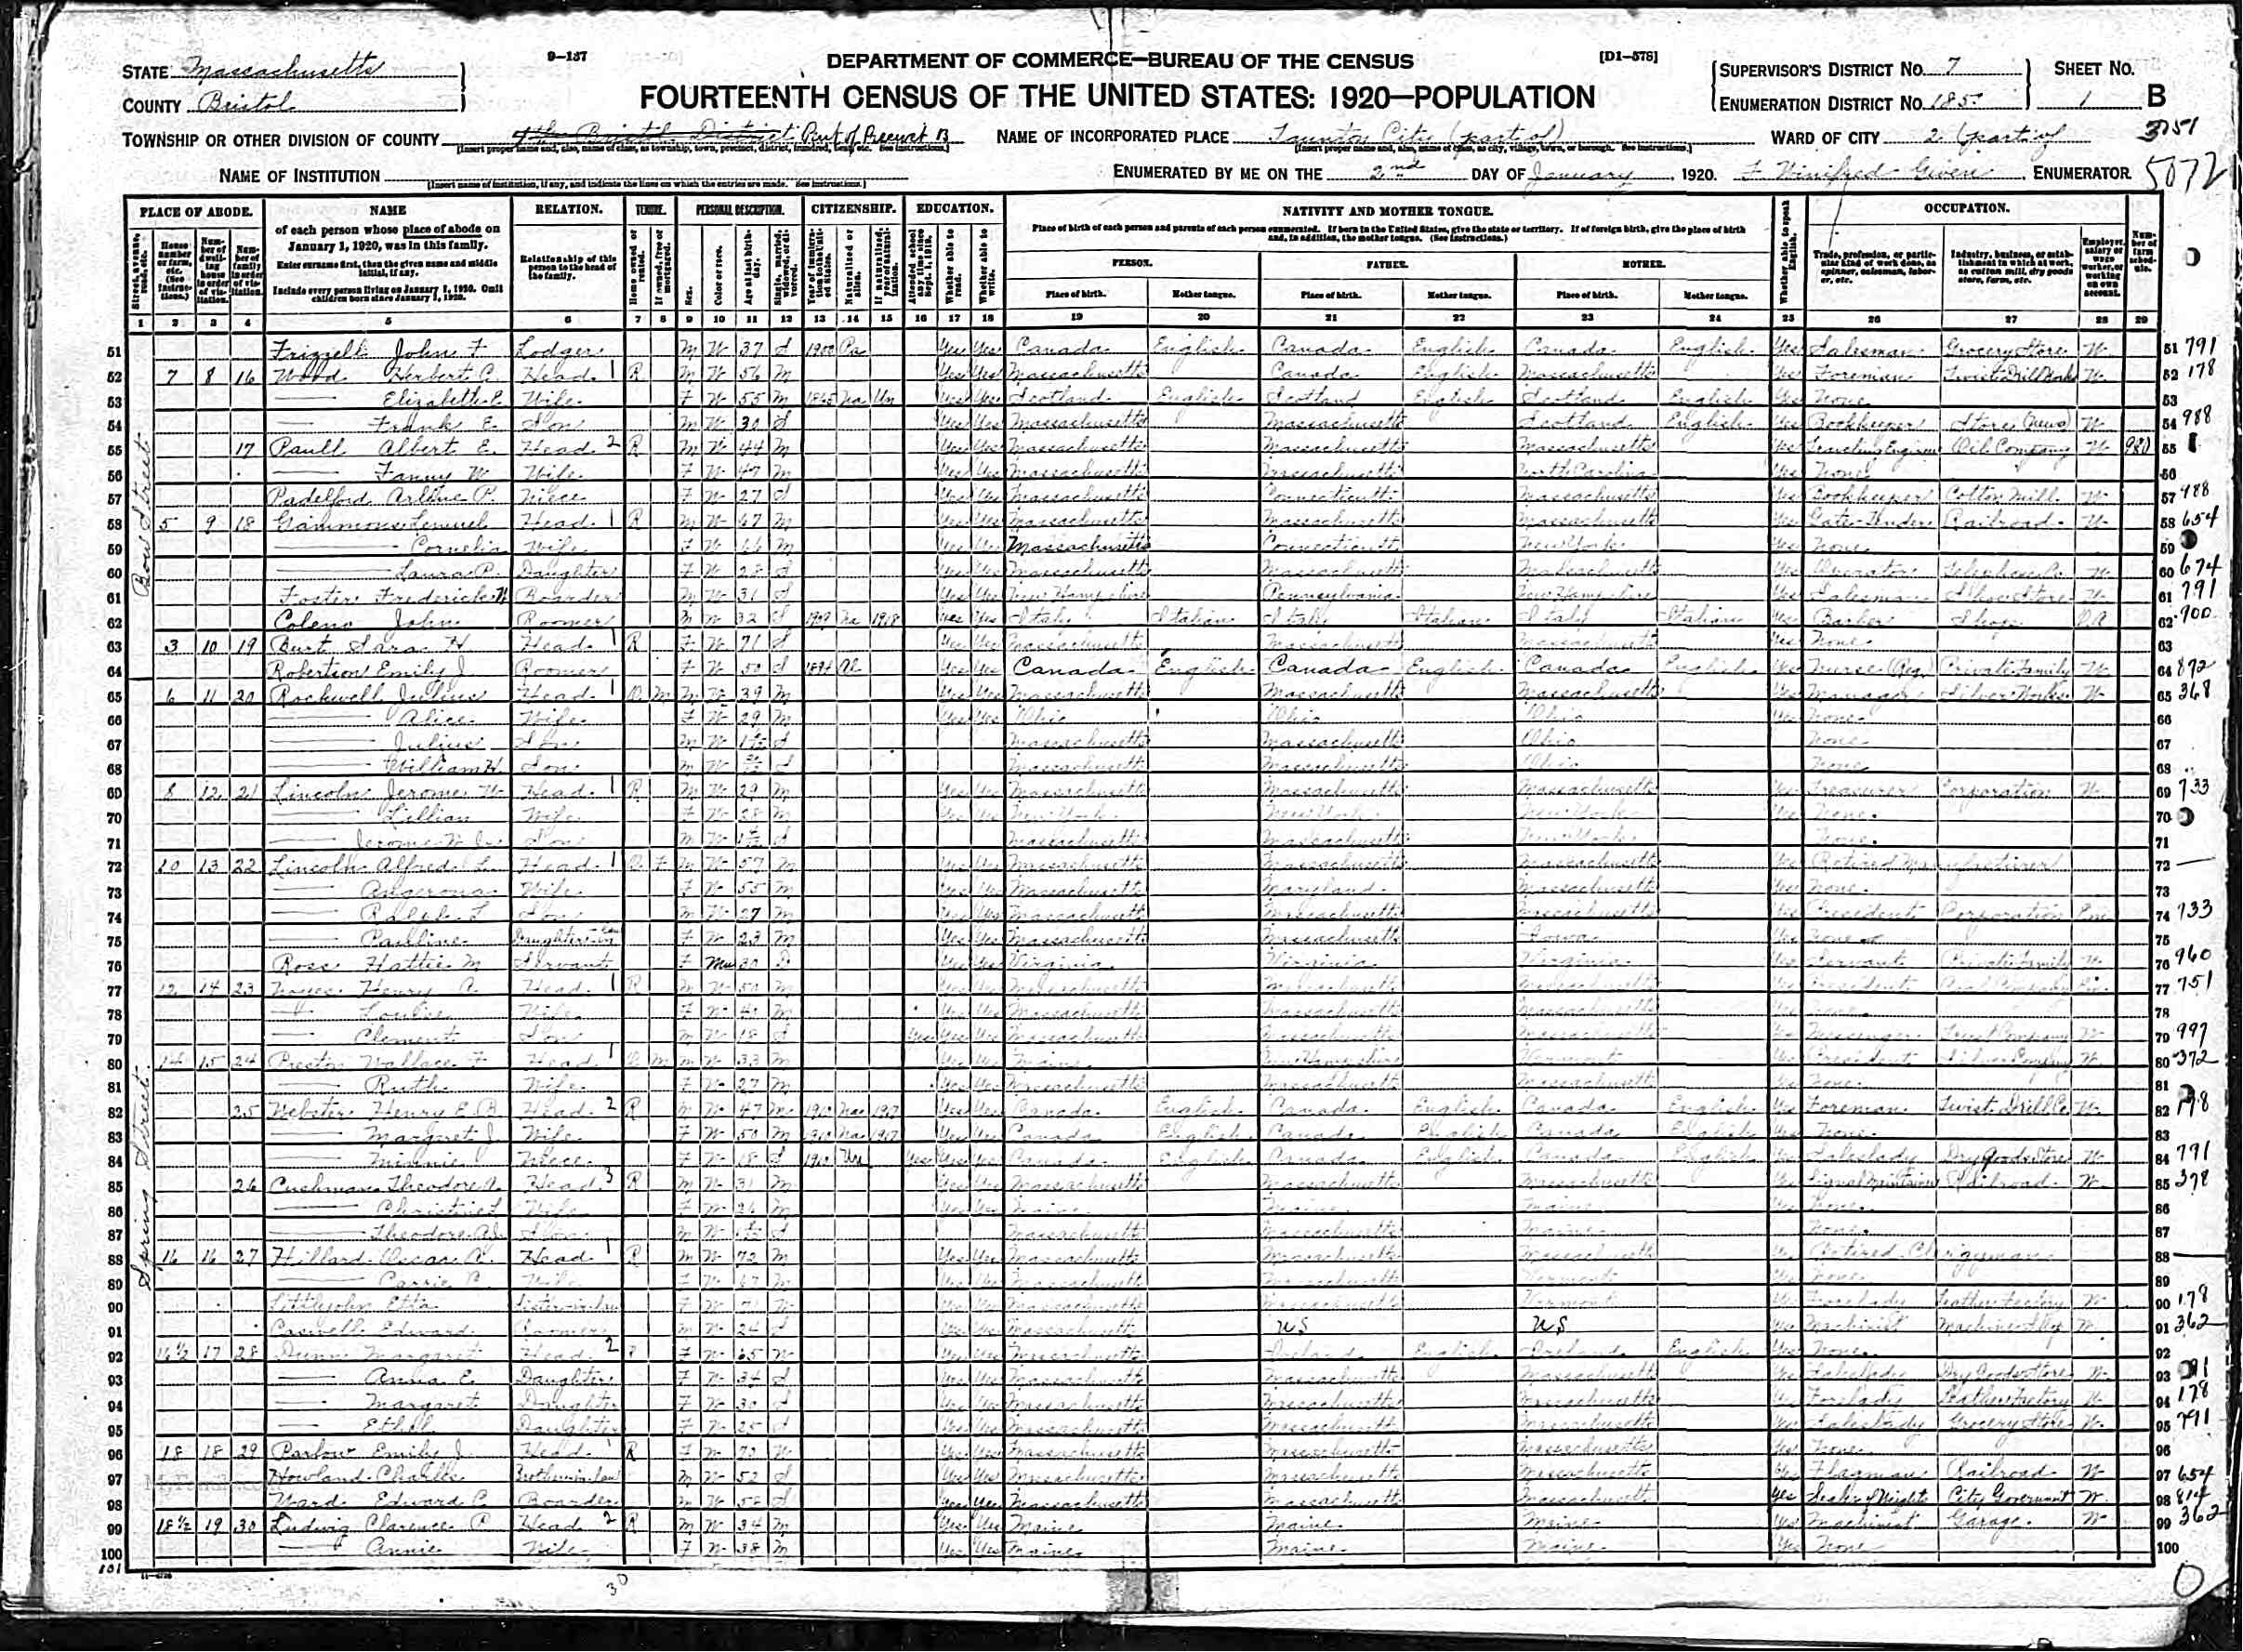 9—137
DEPARTMENT OF COMMERCE—BUREAU OF THE CENSUS
[D1—578]
STATE Massachusetts
COUNTY Bristol
FOURTEENTH CENSUS OF THE UNITED STATES: 1920—POPULATION
SUPERVISOR'S DISTRICT NO. 7
SHEET NO.
ENUMERATION DISTRICT NO. 185
1 B
TOWNSHIP OR OTHER DIVISION OF COUNTY Part of Precinct B
NAME OF INCORPORATED PLACE Taunton City (part of)
WARD OF CITY 2 (part of)
3751
NAME OF INSTITUTION
ENUMERATED BY ME ON THE 2nd DAY OF January, 1920. F Winifred ENUMERATOR
5072
PLACE OF ABODE.
NAME
of each person whose place of abode on January 1, 1920, was in this family.
Enter surname first, then the given name and middle initial, if any.
Include every person living on January 1, 1920. Omit children born since January 1, 1920.
RELATION.
Relationship of this person to the head of the family.
TENURE.
PERSONAL DESCRIPTION.
CITIZENSHIP.
EDUCATION.
NATIVITY AND MOTHER TONGUE.
Place of birth of each person and parents of each person enumerated. If born in the United States, give the state or territory. If of foreign birth, give the place of birth and, in addition, the mother tongue. (See instructions.)
PERSON. FATHER. MOTHER.
Place of birth. Mother tongue. Place of birth. Mother tongue. Place of birth. Mother tongue.
OCCUPATION.
1 2 3 4 5 6 7 8 9 10 11 12 13 14 15 16 17 18 19 20 21 22 23 24 25 26 27 28 29
Bow Street
51 Frizzell John F Lodger M W 37 S 1900 Pa Yes Yes Canada English Canada English Canada English Yes Salesman Grocery Store W 51 791
52 7 8 16 Wood Herbert Head 1 R M W 56 M Yes Yes Massachusetts Canada English Massachusetts Yes Foreman Twist Drill Works W 52 178
53 Elizabeth E Wife F W 55 M 1865 Na Un Yes Yes Scotland English Scotland English Scotland English Yes None 53
54 Frank E. Son M W 30 S Yes Yes Massachusetts Massachusetts Scotland English Yes Bookkeeper Store (News) W 54 988
55 17 Paull Albert E. Head 2 R M W 44 M Yes Yes Massachusetts Massachusetts Massachusetts Yes Traveling Engineer Oil Company W 980 55
56 Fanny W Wife F W 47 M Yes Yes Massachusetts Massachusetts North Carolina Yes None 56
57 Padelford Arline P. Niece F W 27 S Yes Yes Massachusetts Connecticut Massachusetts Yes Bookkeeper Cotton Mill W 57 988
58 5 9 18 Gammons Lemuel Head 1 R M W 67 M Yes Yes Massachusetts Massachusetts Massachusetts Yes Gate Tender Railroad W 58 654
59 Cornelia Wife F W 66 M Yes Yes Massachusetts Connecticut New York Yes None 59
60 Laura P. Daughter F W 28 S Yes Yes Massachusetts Massachusetts Massachusetts Yes Operator Telephone Co. W 60 674
61 Foster Frederick W Boarder M W 31 S Yes Yes New Hampshire Pennsylvania New Hampshire Yes Salesman Shoe Store W 61 791
62 John Roomer M W 32 S 1909 Na 1918 Yes Yes Italy Italian Italy Italian Italy Italian Yes Barber Shop OA 62 900
63 3 10 19 Burt Sara H Head 1 R F W 71 S Yes Yes Massachusetts Massachusetts Massachusetts Yes None 63
64 Robertson Emily J Roomer F W 50 S 1894 Al Yes Yes Canada English Canada English Canada English Yes Nurse (Reg) Private Family W 64 872
65 6 11 20 Rockwell Julius Head 1 O M M W 39 M Yes Yes Massachusetts Massachusetts Massachusetts Yes Manager Silver Works W 65 368
66 Alice Wife F W 29 M Yes Yes Ohio Ohio Ohio Yes None 66
67 Julius Son M W S Massachusetts Massachusetts Ohio None 67
68 William H. Son M W S Massachusetts Massachusetts Ohio None 68
69 8 12 21 Lincoln Jerome W Head 1 R M W 29 M Yes Yes Massachusetts Massachusetts Massachusetts Yes Treasurer Corporation W 69 733
70 Lillian Wife F W 28 M Yes Yes New York New York New York Yes None. 70
71 Jerome W Jr Son M W S Massachusetts Massachusetts New York None. 71
72 10 13 22 Lincoln Alfred L. Head 1 O F M W 57 M Yes Yes Massachusetts Massachusetts Massachusetts Yes Retired Manufacturer 72
73 Angerona Wife F W 55 M Yes Yes Massachusetts Maryland Massachusetts Yes None. 73
74 Ralph L Son M W 27 M Yes Yes Massachusetts Massachusetts Massachusetts Yes President Corporation Em 74 733
75 Pauline Daughter-in-law F W 23 M Yes Yes Massachusetts Massachusetts Iowa Yes None 75
76 Ross Hattie M Servant F Mu 30 Yes Yes Virginia Virginia Virginia Yes Servant Private Family W 76 960
77 12 14 23 Noyes Henry A. Head 1 R M W 50 M Yes Yes Massachusetts Massachusetts Massachusetts Yes President Coal Company Em 77 751
78 Louise Wife F W M Yes Yes Massachusetts Massachusetts Massachusetts Yes None. 78
79 Clement Son M W 18 S Yes Yes Yes Massachusetts Massachusetts Massachusetts Yes Messenger Trust Company W 79 997
Spring Street
80 14 15 24 Preston Wallace F Head 1 O M M W 33 M Yes Yes Maine New Hampshire Vermont Yes President Silver Company W 80 372
81 Ruth Wife F W 27 M Yes Yes Massachusetts Massachusetts Massachusetts Yes None. 81
82 25 Webster Henry E. B. Head 2 R M W 47 M 1910 Na 1917 Yes Yes Canada English Canada English Canada English Yes Foreman Twist Drill Co W 82 178
83 Margaret J. Wife F W 50 M 1910 Na 1917 Yes Yes Canada English Canada English Canada English Yes None. 83
84 Minnie Niece F W 18 S 1910 Yes Yes Yes Canada English Canada English Canada English Yes Saleslady Dry Goods Store W 84 791
85 26 Cushman Theodore Head 3 R M W 31 M Yes Yes Massachusetts Massachusetts Massachusetts Yes Signal Maintainer Railroad W 85 378
86 Christine L Wife F W 26 M Yes Yes Maine Maine Maine Yes None. 86
87 Theodore Son M W S Massachusetts Massachusetts Maine None. 87
88 16 16 27 Hillard Oscar A. Head 1 R M W 72 M Yes Yes Massachusetts Massachusetts Massachusetts Yes Retired Clergyman 88
89 Carrie Wife F W 67 M Yes Yes Massachusetts Massachusetts Vermont Yes None 89
90 Littlejohn Etta Sister-in-law F W 71 W Yes Yes Massachusetts Massachusetts Vermont Yes Forelady Leather Factory W 90 178
91 Caswell Edward Roomer M W 24 S Yes Yes Massachusetts US US Yes Machinist Machine Shop W 91 362
92 16½ 17 28 Dunn Margaret Head 2 F W 65 W Yes Yes Massachusetts Ireland English Ireland English Yes None. 92
93 Anna E. Daughter F W 34 S Yes Yes Massachusetts Massachusetts Massachusetts Yes Saleslady Dry Goods Store W 93
94 Margaret Daughter F W 30 S Yes Yes Massachusetts Massachusetts Massachusetts Yes Forelady Leather Factory W 94 178
95 Ethel Daughter F W 25 S Yes Yes Massachusetts Massachusetts Massachusetts Yes Saleslady Grocery Store W 95 791
96 18 18 29 Parlow Emily J. Head 1 R F W W Yes Yes Massachusetts Massachusetts Massachusetts Yes None 96
97 Howland Charles Brother-in-law M W 52 S Yes Yes Massachusetts Massachusetts Massachusetts Yes Flagman Railroad W 97 654
98 Ward Edward C. Boarder M W 58 S Yes Yes Massachusetts Massachusetts Massachusetts Yes Sealer of Weights City Government W 98 814
99 18½ 19 30 Ludwig Clarence P Head 2 R M W 34 M Yes Yes Maine Maine Maine Yes Machinist Garage. W 99 362
100 Annie Wife F W 38 M Yes Yes Maine Maine Maine Yes None 100
101
30
0